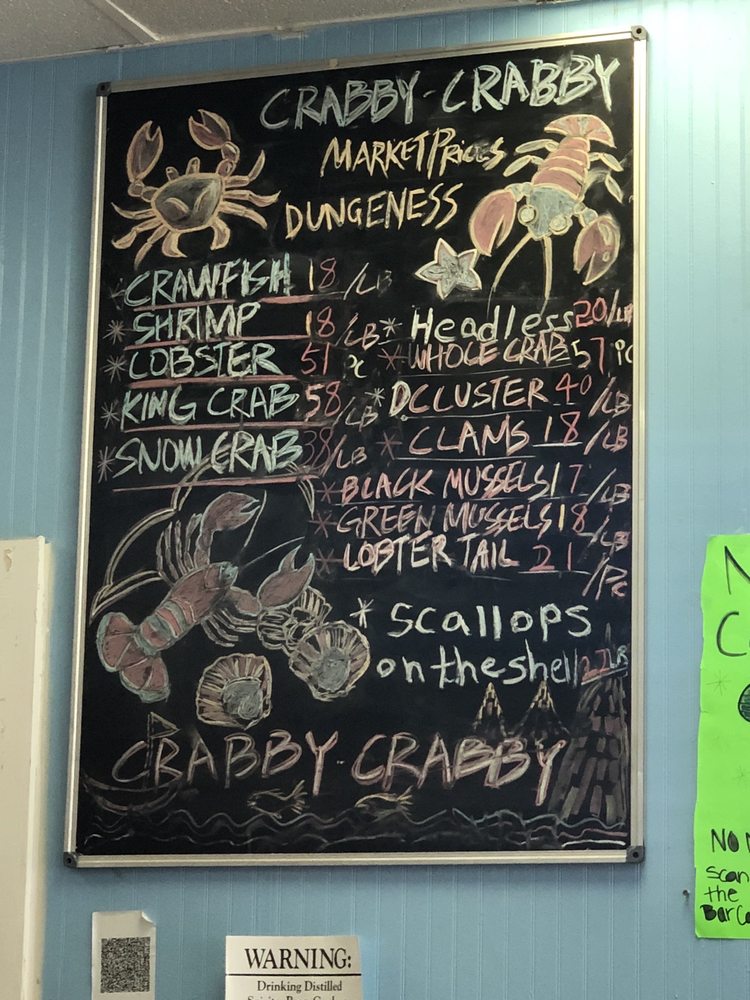 CRABBY-CRABBY
MARKET Prices
DUNGENESS
CRAWFISH 18/LB
* SHRIMP 18/LB
* LOBSTER 51 Pc
* KING CRAB 58/LB
* SNOW CRAB 38/LB
* Headless 20/LB
* WHOLE CRAB 57 PC
* DC CLUSTER 40/LB
* CLAMS 18/LB
* BLACK MUSSELS 17/LB
* GREEN MUSSELS 18/LB
* LOBTER TAIL 21/Pc
* scallops
on the shell 27LB
CRABBY-CRABBY
WARNING:
Drinking Distilled
N
C
NO
scan
the
BarCo